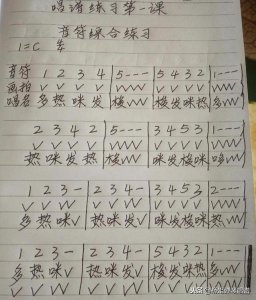 唱谱练习第一课
音符综合练习
1=C
音符 1 2 3 4 | 5--- | 5 4 3 2 | 1---
画拍 ✓ ✓ ✓ ✓ | ✓✓✓✓ | ✓ ✓ ✓ ✓ | ✓✓✓✓
唱名 多 热 咪 发 | 梭\/\/\/ | 梭 发 咪 热 | 多\/\/\/
2 3 4 2 | 5--- | 3 4 5 3 | 1---
✓ ✓ ✓ ✓ | ✓✓✓✓ | ✓ ✓ ✓ ✓ | ✓✓✓✓
热 咪 发 热 | 梭\/\/\/ | 咪 发 梭 咪 | 哆\/\/\/
1 2 3 - | 2 3 4 - | 3 4 5 3 | 2---
✓ ✓ ✓ ✓ | ✓ ✓ ✓ ✓ | ✓ ✓ ✓ ✓ | ✓✓✓✓
多 热 咪 ✓ | 热 咪 发 ✓ | 咪 发 梭 咪 | 热\/\/\/
1 2 3 - | 2 3 4 - | 5 4 3 2 | 1---
多 热 咪 ✓ | 热 咪 发 ✓ | 梭 发 咪 热 | 多\/\/\/
✓ ✓ ✓ ✓ | ✓ ✓ ✓ ✓ | ✓ ✓ ✓ ✓